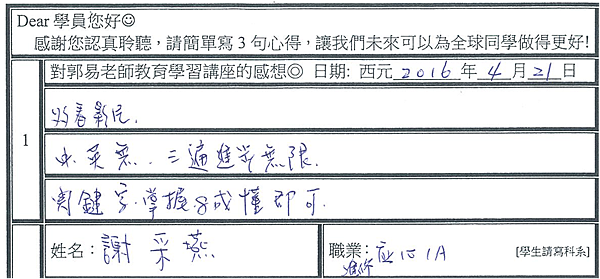 Dear 學員您好☺
感謝您認真聆聽，請簡單寫 3 句心得，讓我們未來可以為全球同學做得更好!
對郭易老師教育學習講座的感想◎ 日期: 西元 2016 年 4 月 21 日
1
好看影片.
三遍進步無限.
關鍵字.掌握8成懂即可.
姓名：謝采燕
職業: 應心1A [學生請寫科系]